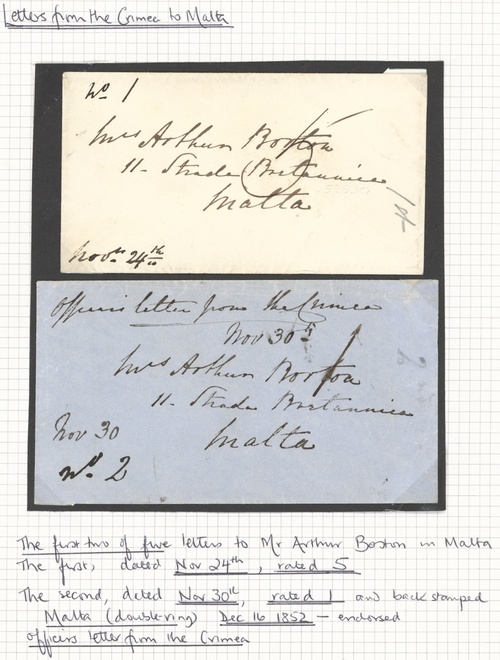 Letters from the Crimea to Malta
No 1
Mrs Arthur Borton
11- Strada Britannica
Malta
1st
Novbr 24th
Officers letter from the Crimea
Nov 30th
Mrs Arthur Borton
11- Strada Britannica
Nov 30
Malta
No 2
The first two of five letters to Mr Arthur Boston in Malta
The first, dated Nov 24th, rated 5
The second, dated Nov 30th, rated 1 and backstamped
Malta (double-ring) Dec 16 1852 - endorsed
officers letter from the Crimea